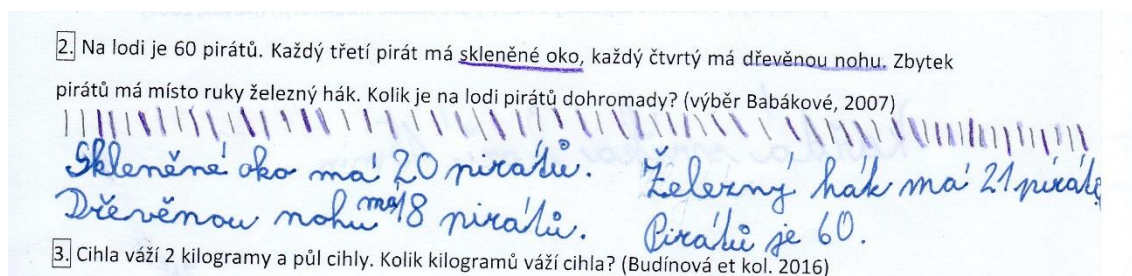 2. Na lodi je 60 pirátů. Každý třetí pirát má skleněné oko, každý čtvrtý má dřevěnou nohu. Zbytek
pirátů má místo ruky železný hák. Kolik je na lodi pirátů dohromady? (výběr Babákové, 2007)
Skleněné oko má 20 pirátů.
Dřevěnou nohu má 18 pirátů.
Železný hák má 21 pirátů
Pirátů je 60.
3. Cihla váží 2 kilogramy a půl cihly. Kolik kilogramů váží cihla? (Budínová et kol. 2016)